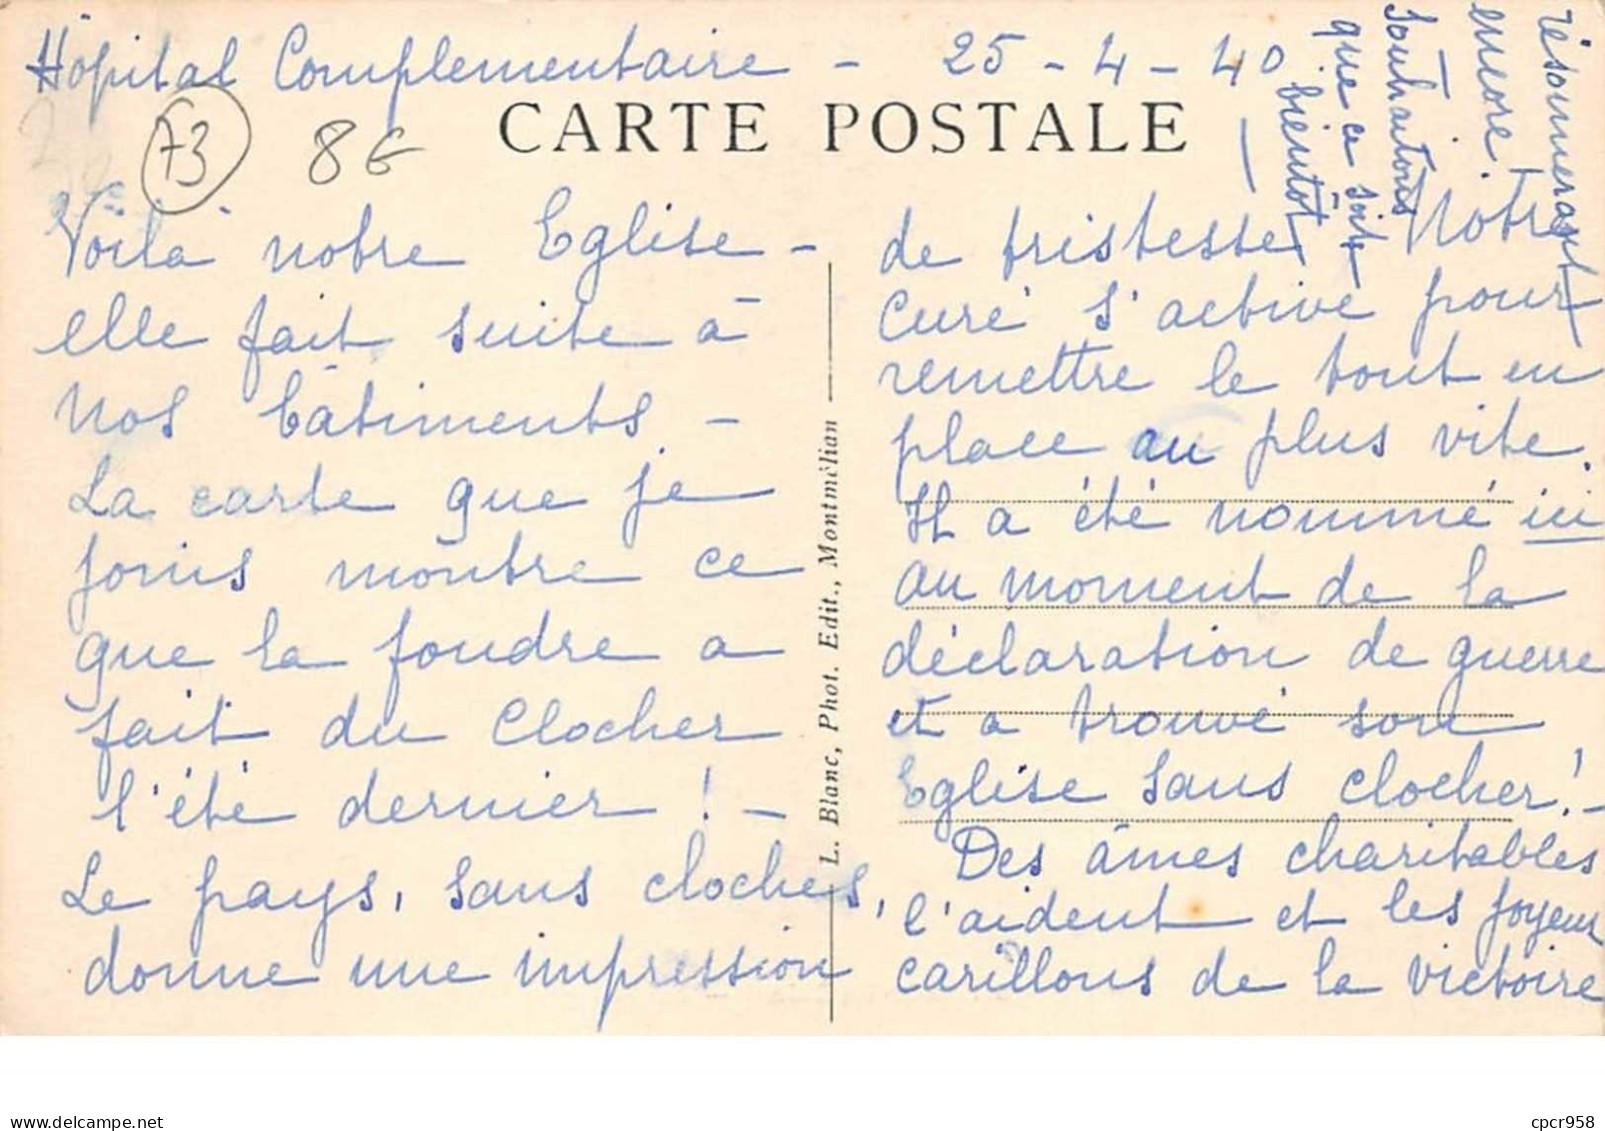 Hôpital Complementaire - 25-4-40
CARTE POSTALE
73
8€
Voilà notre Eglise -
elle fait suite à
nos bâtiments -
La carte que je
joins montre ce
que la foudre a
fait du Clocher
l'été dernier ! -
Le pays, sans cloches,
donne une impression
L. Blanc, Phot. Edit., Montmélian
de tristesse. Notre
Curé s'active pour
remettre le tout en
place au plus vite.
Il a été nommé ici
au moment de la
déclaration de guerre
et a trouvé son
Eglise sans clocher ! -
Des âmes charitables
l'aident et les joyeux
carillons de la victoire
résonneront
encore !
Souhaitons
que ce soit
bientôt
cpcr958